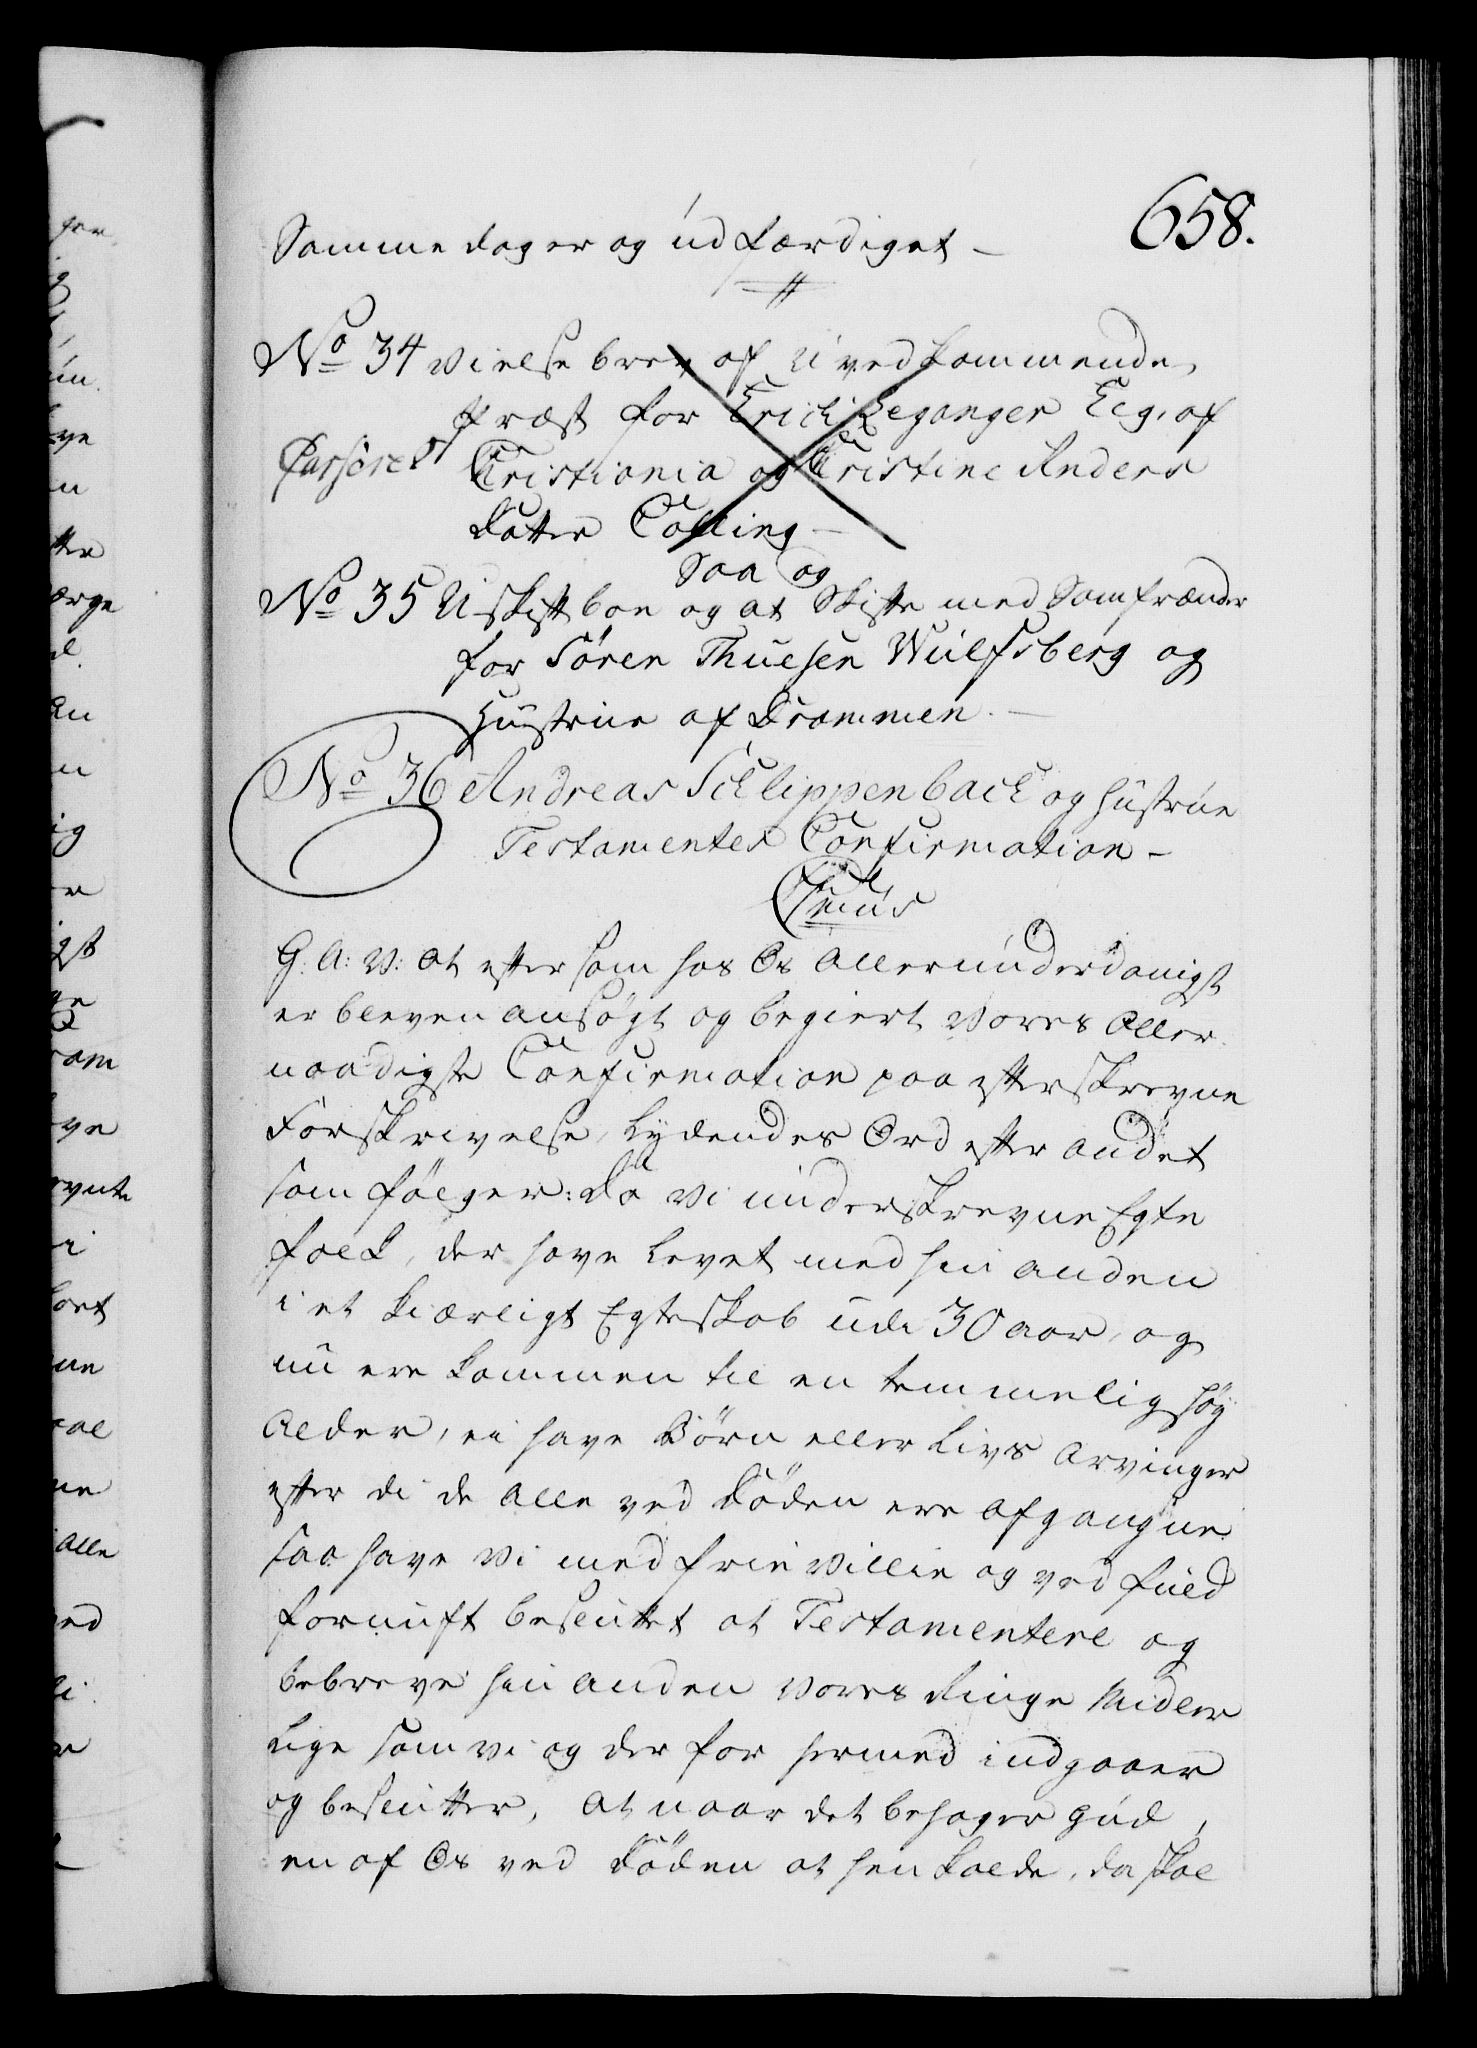 658.
Samme dag er og udfærdiget
No 34 Vielse brev af uvedkommende
Præst for Erich Leganger Ecq. af
Casseret
Cristiania og Cristine Anders
datter Colling
Saa og
No 35 Uskift boe og at Skifte med Samfrænder
for Sören Thuesen Wülfsberg og
Hustrue af Drammen.
No 36 Andreas Schlippenbach og Hustrue
Testamentes Confirmation
G: A: V: At eftersom hos Os Allerunderdanigst
er bleven ansøgt og begiert Vores Aller
naadigste Confirmation paa efterskrevne
Forskrivelse, lydendes Ord efter andet
som følger: Da Vi underskrevne Egte
folk, der have levet med hin anden
i et kiærligt Egteskab udi 30 aar, og
nu ere kommen til en temmelig høy
Alder, ei have Börn eller Livs Arvinger
efter di de alle ved Döden ere afgangne
saa have Vi med frie Villie og ved fuld
fornuft besluttet at Testamentere og
bebreve hin anden Vores Ringe Midler
lige som vi og der for hermed indgaaer
og beslutter, At naar det behager Gud,
en af Os ved Döden at henkalde, da skal